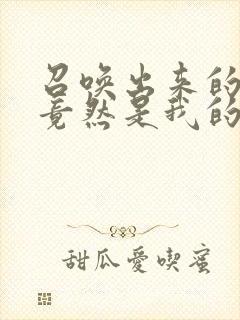 召唤出来的
竟然是我的
甜瓜愛喫蜜